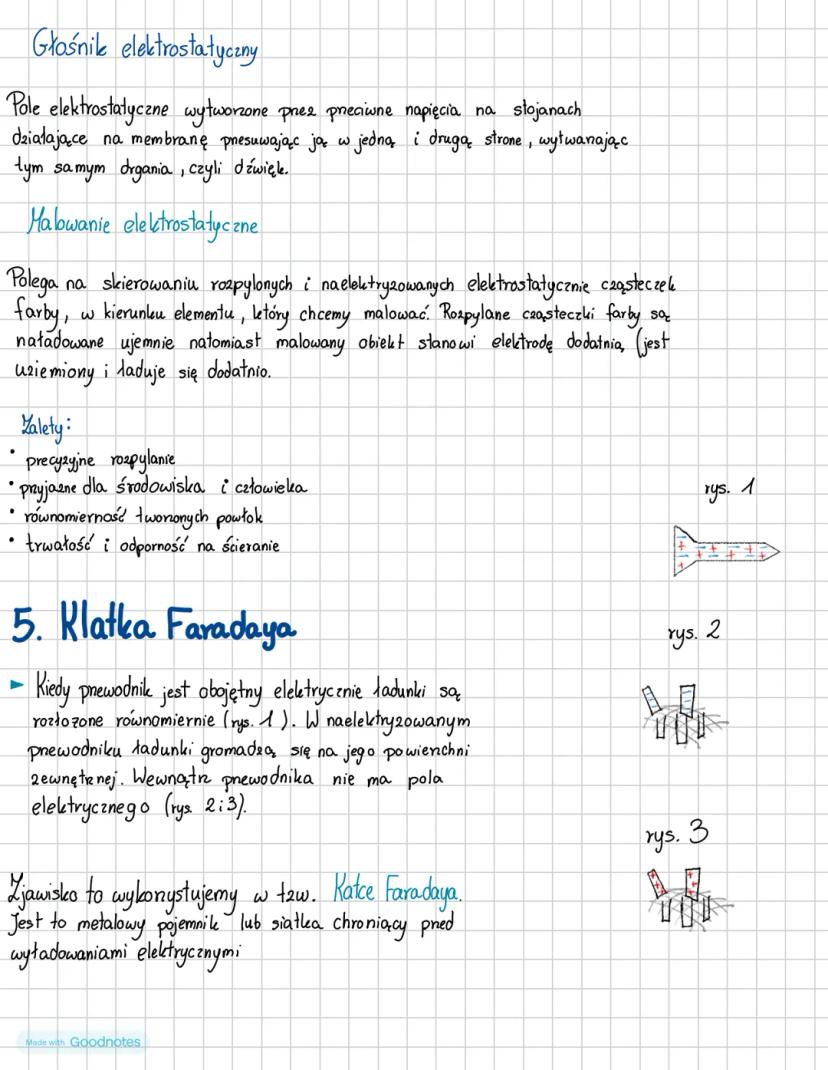 Głośnik elektrostatyczny
Pole elektrostatyczne wytworzone przez przeciwne napięcia na stojanach
działające na membranę przesuwając ją w jedną i drugą strone, wytwarzając
tym samym drgania, czyli dźwięk.
Malowanie elektrostatyczne
Polega na skierowaniu rozpylonych i naelektryzowanych elektrostatycznie cząsteczek
farby, w kierunku elementu, który chcemy malować. Rozpylane cząsteczki farby są
naładowane ujemnie natomiast malowany obiekt stanowi elektrodę dodatnią (jest
uziemiony i ładuje się dodatnio.
Zalety:
• precyzyjne rozpylanie
• przyjazne dla środowiska i człowieka
• równomierność tworzonych powłok
• trwałość i odporność na ścieranie
rys. 1
5. Klatka Faradaya
rys. 2
► Kiedy przewodnik jest obojętny elektrycznie ładunki są
rozłożone równomiernie (rys. 1). W naelektryzowanym
przewodniku ładunki gromadzą się na jego powierzchni
zewnętrznej. Wewnątrz przewodnika nie ma pola
elektrycznego (rys. 2 i 3).
rys. 3
Zjawisko to wykorzystujemy w tzw. Katce Faradaya.
Jest to metalowy pojemnik lub siatka chroniący przed
wyładowaniami elektrycznymi
Made with Goodnotes